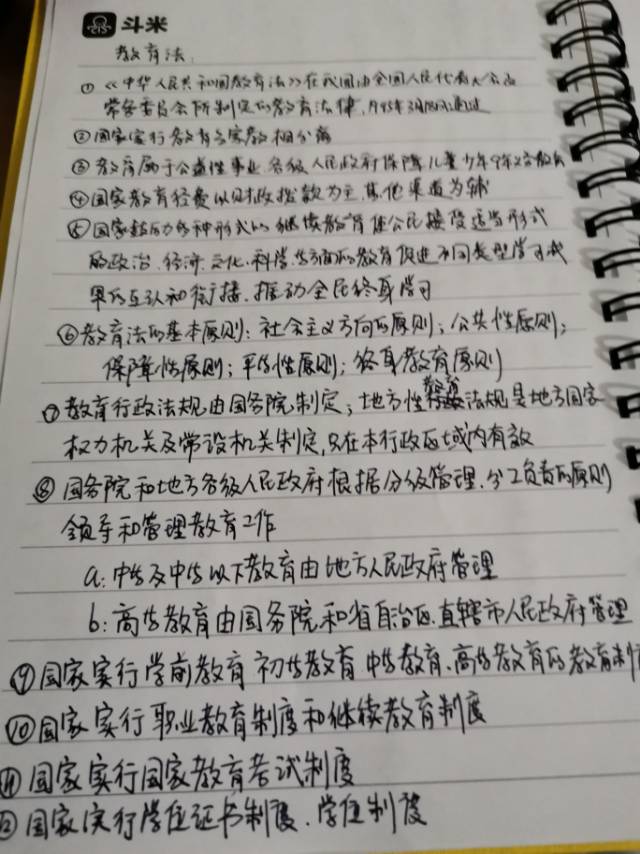 斗米
教育法
① 《中华人民共和国教育法》在我国由全国人民代表大会
常务委员会所制定的教育法律,
②国家实行教育与宗教相分离
③ 教育属于公益性事业 各级人民政府保障儿童少年9年义务教育
④国家教育经费以财政拨款为主,其他渠道为辅
⑤国家鼓励多种形式的继续教育使公民接受适当形式
的政治、经济、文化、科学等方面的教育促进不同类型学习成
果的互认和衔接,推动全民终身学习
⑥教育法的基本原则:社会主义方向的原则;公共性原则;
保障性原则;平等性原则;终身教育原则
⑦教育行政法规由国务院制定;地方性教育法规是地方国家
权力机关及常设机关制定,只在本行政区域内有效
⑧ 国务院和地方各级人民政府根据分级管理、分工负责的原则
领导和管理教育工作
a:中等及中等以下教育由地方人民政府管理
b:高等教育由国务院和省自治区、直辖市人民政府管理
⑨国家实行学前教育 初等教育 中等教育、高等教育的教育制
⑩国家实行职业教育制度和继续教育制度
⑪国家实行国家教育考试制度
⑫国家实行学位证书制度、学位制度